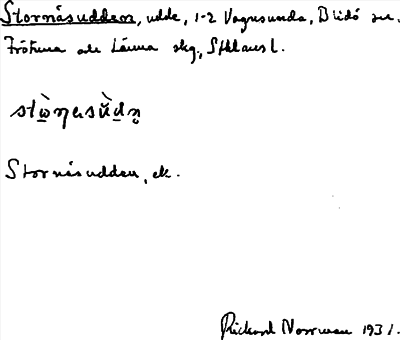 Stornäsudden, udde, 1-2 Vagnsunda, Blidö sn.
Frötuna och Länna skg., Sthlms l.
stὼƞɐsǜdn̥
Stornäsudden, ek.
Rickard Norrman 1931.